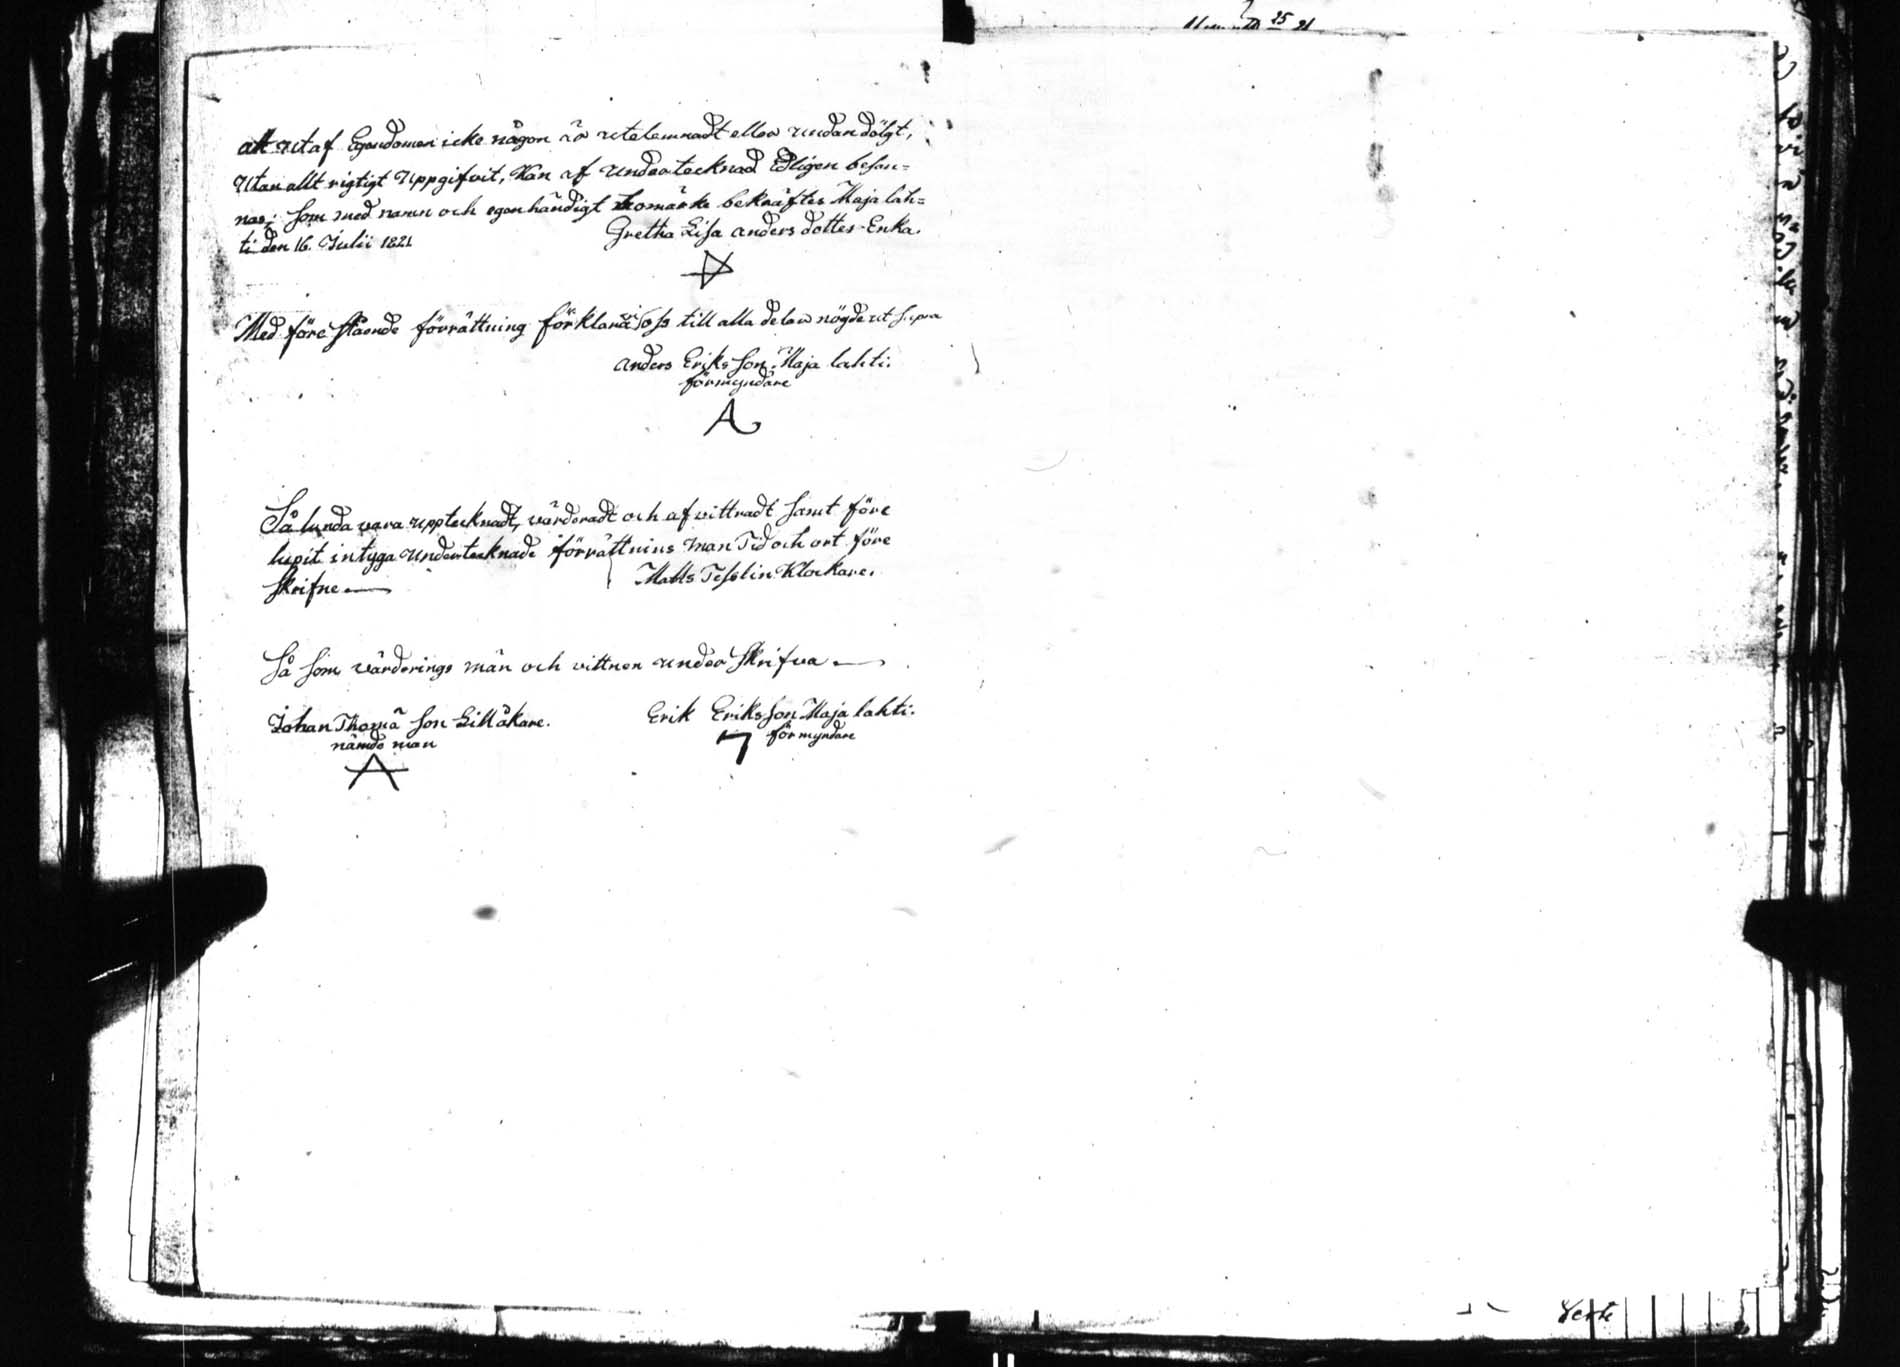 att utaf Egendomen icke någon är utelemnadt eller undandölgt,
Utan allt rigtigt Uppgifvit, Kan af undertecknad Edligen besan=
nas; som med namn och egenhändigt bomärke bekräftes Majalah=
ti den 16. Julii 1821
Gretha Lisa anders dotter Enka.
Med före stående förrättning förklarar oss till alla delar nögde ut supra
anders Eriks son Maja lahti.
förmyndare
A
Så lunda vara upptecknadt, värderadt och af vittradt samt före
lupit intyga undertecknade förrättnins man Tid och ort före
skrifne
Matts Tesslin Klockare.
Så som värderings män och vittnen under skrifva
Johan Thomä son Lillåkare.
nämde man
Erik Eriksson Maja lahti.
förmyndare